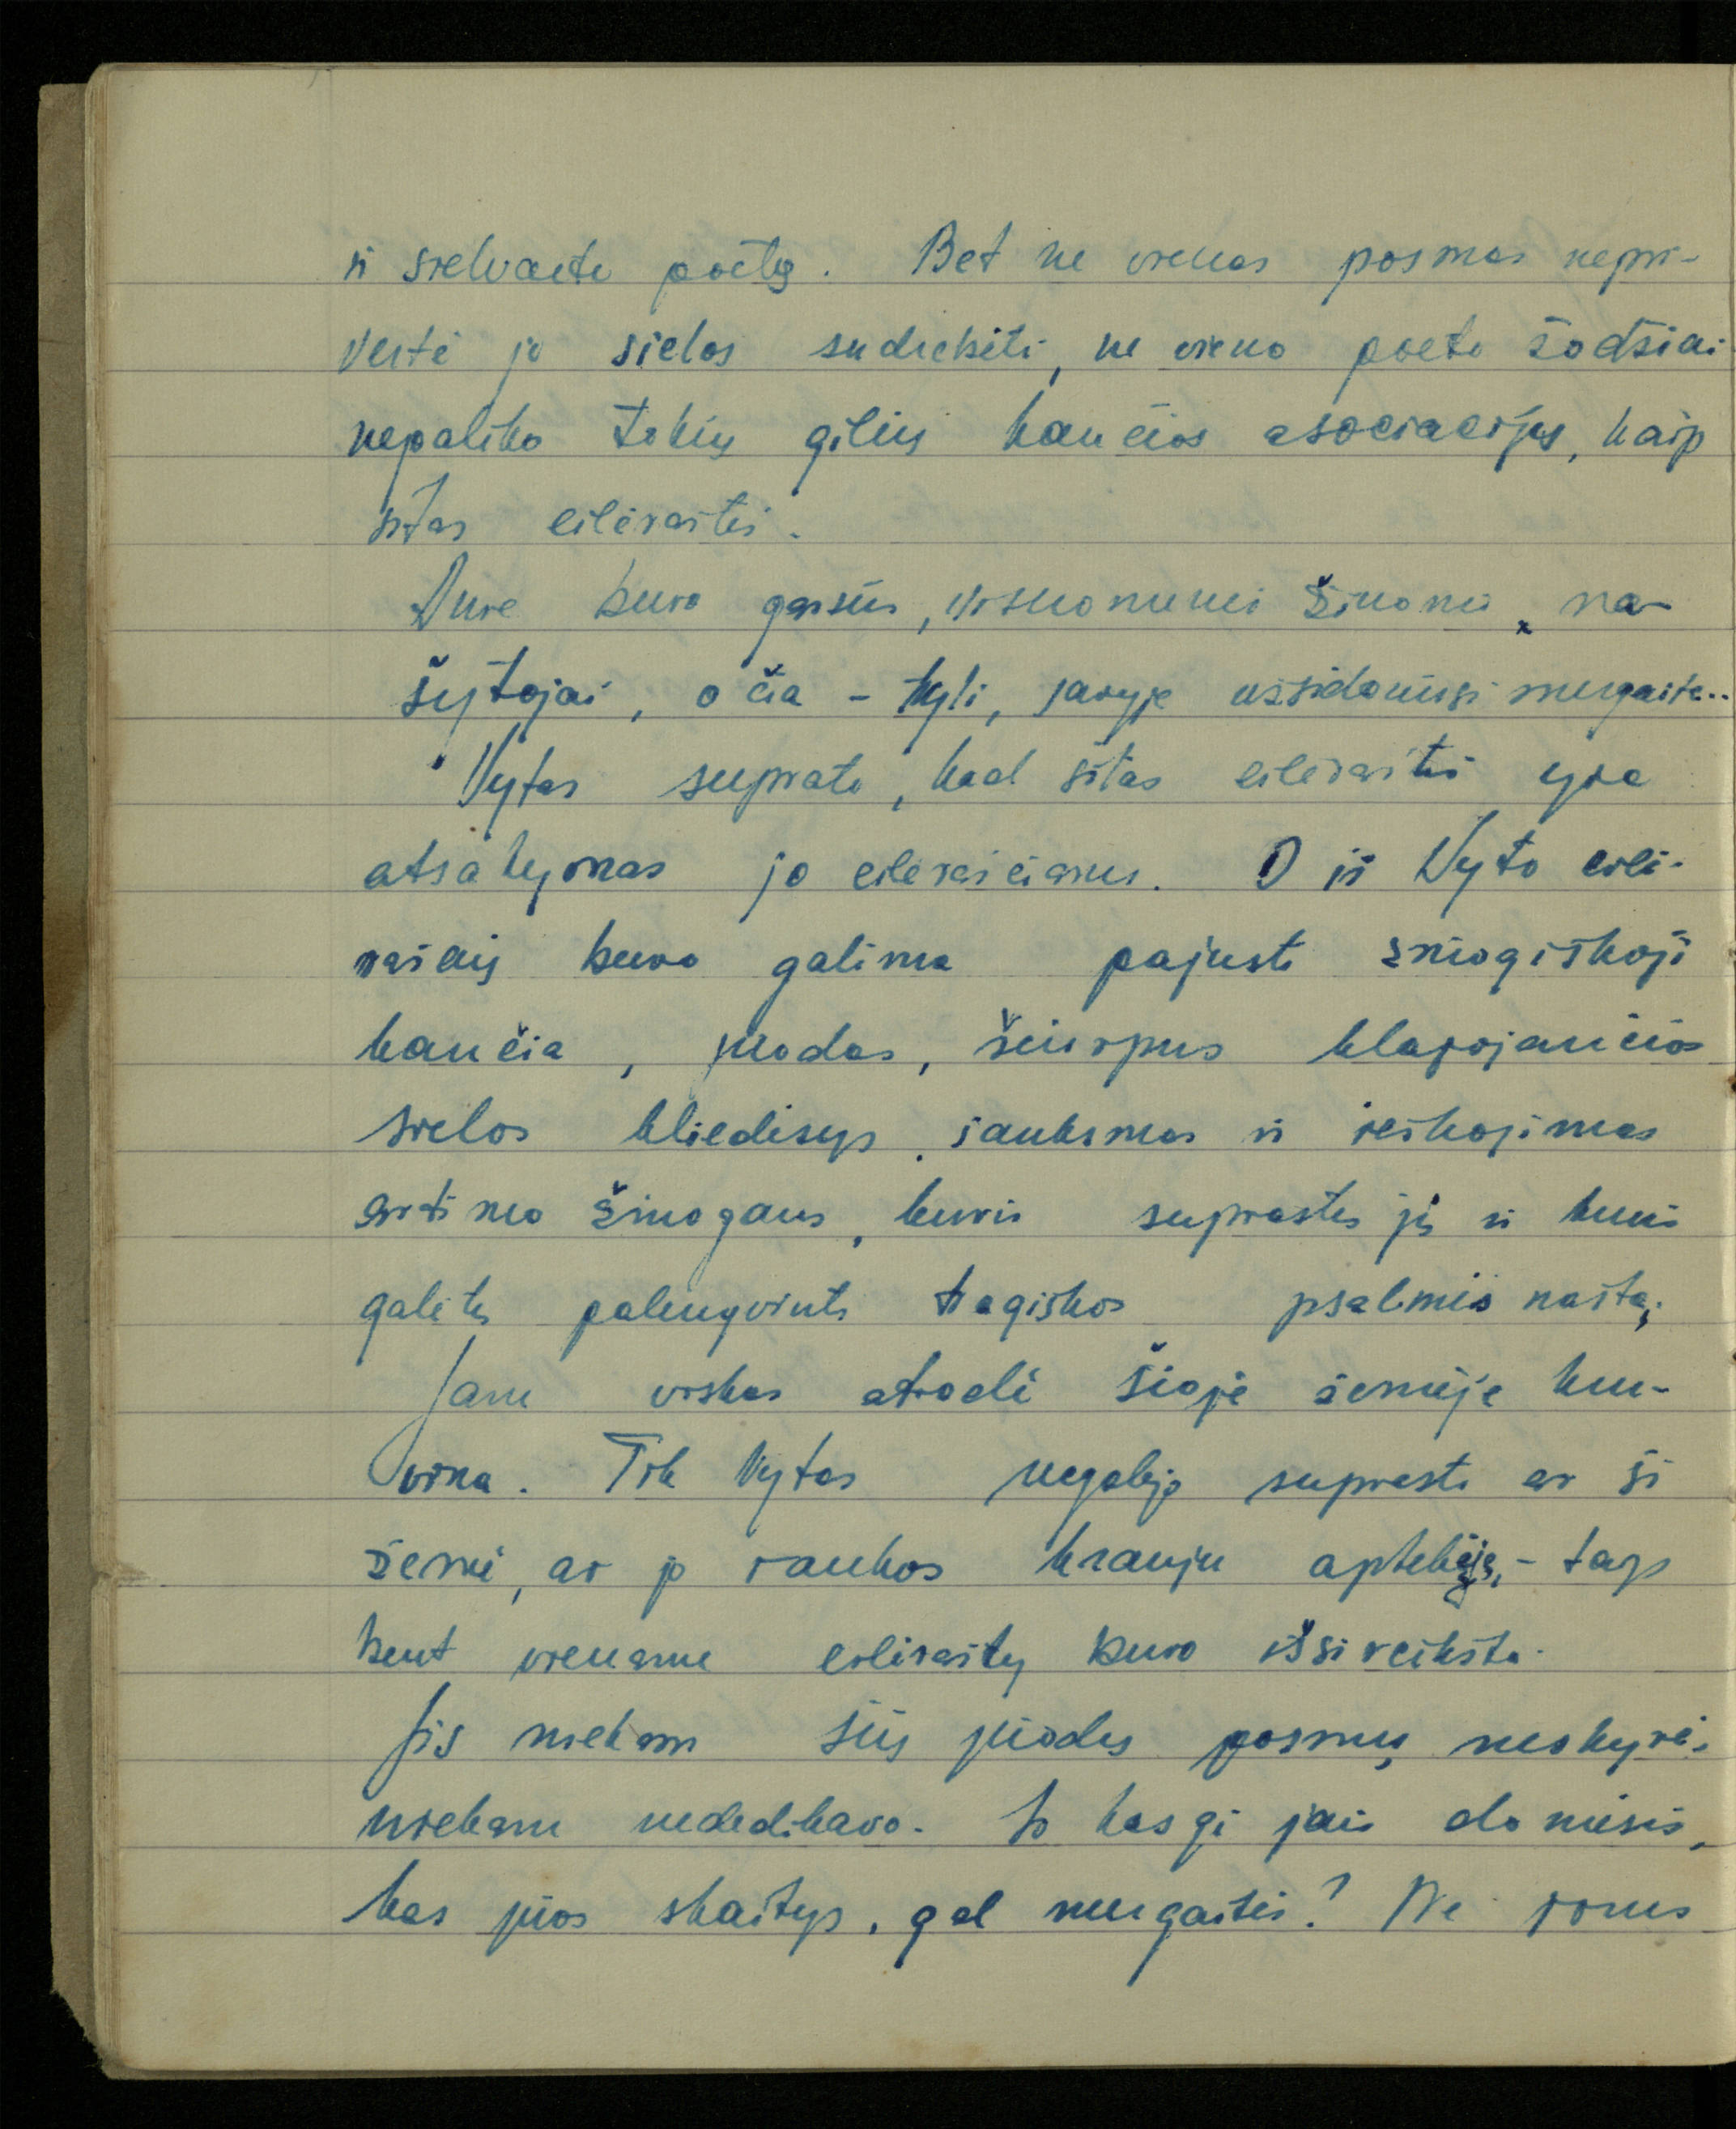 ir sielvartu poetų. Bet ne vienas posmas nepri-
vertė jo sielos sudrebėti, ne vieno poeto žodžiai
nepaliko tokių gilių kančios asociacijų, kaip
šitas eilėraštis.
Ane buvo garsūs, visuomenei žinomi, ra-
šytojai, o čia - tyli, savyje užsidariusi mergaitė..
Vytas suprato, kad šitas eilėraštis yra
atsakymas jo eilėraščiams. O iš Vyto eilė-
raščių buvo galima pajusti žmogiškoji
kančia, juodas, šiurpus klajojančios
sielos kliedesys, šauksmas ir ieškojimas
artimo žmogaus, kuris suprastų jį ir kuris
galėtų palengvinti tragiškos psalmės naštą;
Jam viskas atrodė šioje žemėje kru-
vina. Tik Vytas negalėjo suprasti ar ši
žemė, ar jo rankos krauju aptekėję, - taip
bent viename eilėraštų buvo išsireikšta.
Jis niekam šių juodų posmų neskyrė,
niekam nededikavo. Ir kasgi jais domėsis,
kas juos skaitys, gal mergaitės? Ne joms